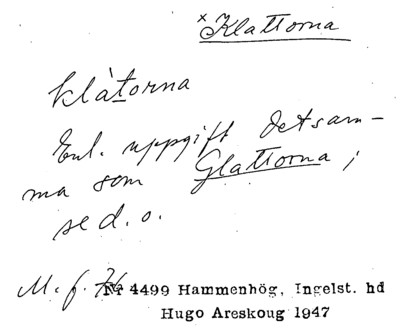 x Klattorna
klàtorna
Enl. uppgift detsam-
ma som Glattorna;
se d. o.
M. f. Nr 4499 Hammenhög, Ingelst. hd
Hugo Areskoug 1947